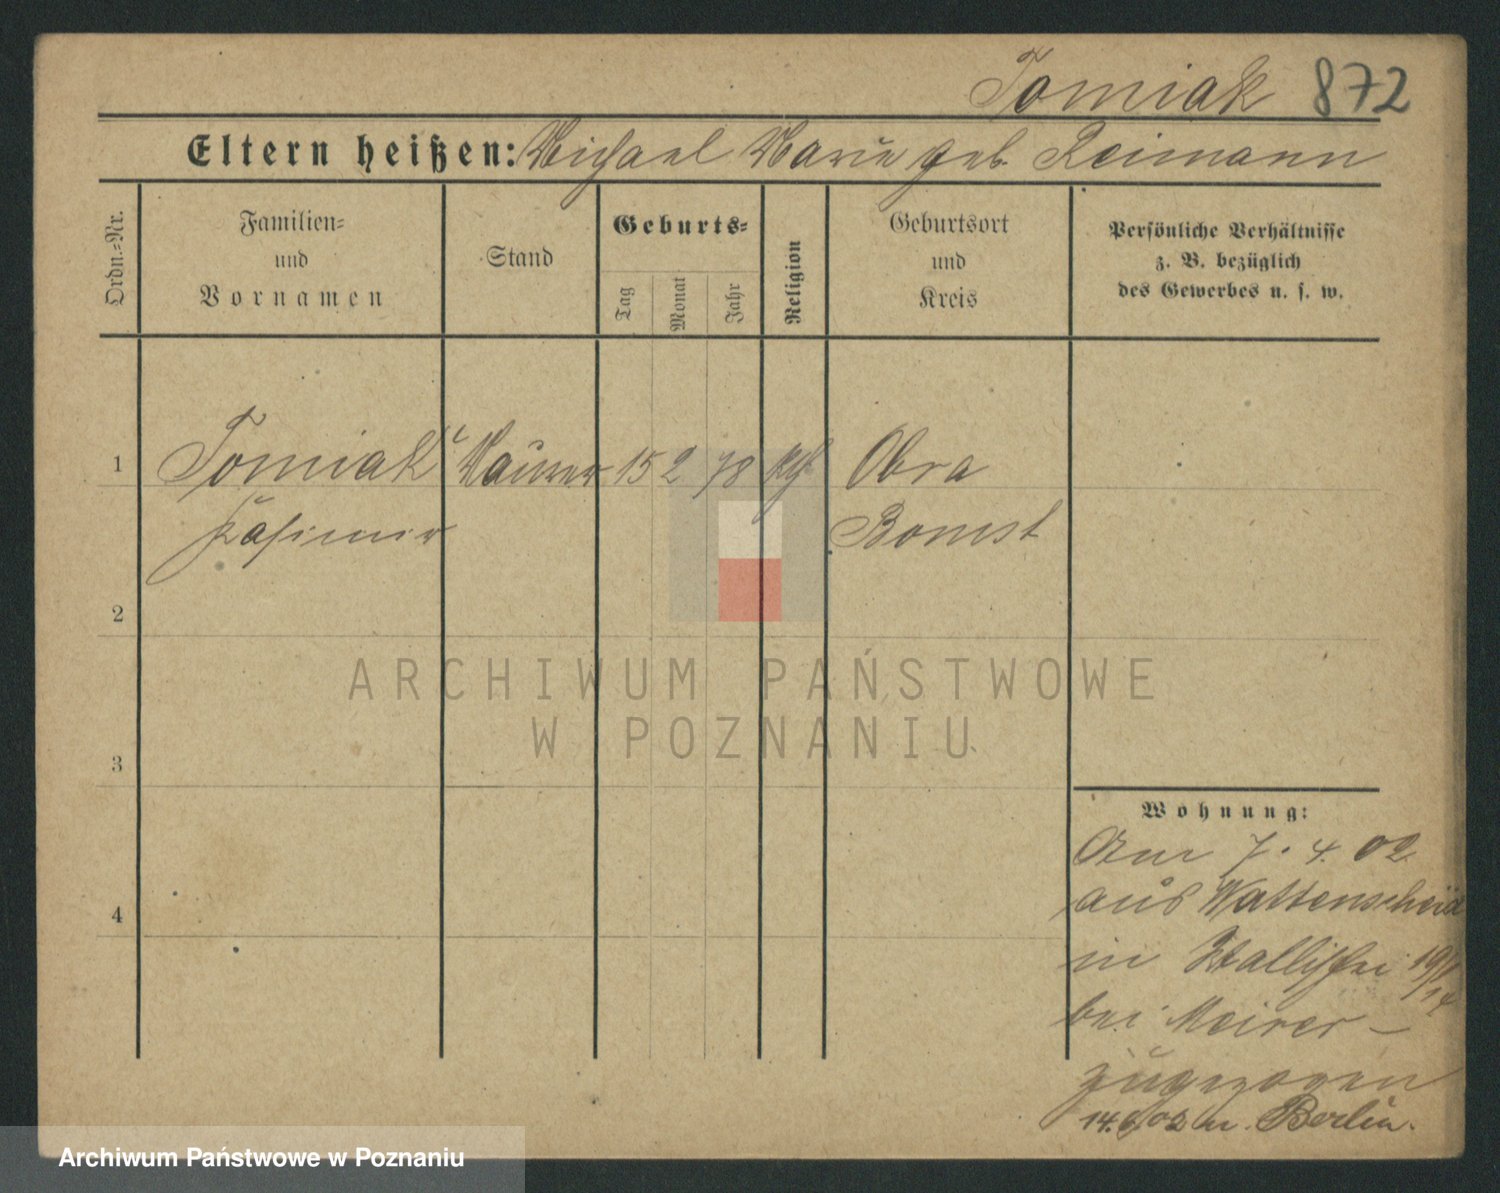 Tomiak 872
Eltern heißen: Michael Marie geb. Reimann
Ordn.=Nr.
Familien=
und
Vornamen
Stand
Geburts=
Tag
Monat
Jahr
Religion
Geburtsort
und
Kreis
Persönliche Verhältnisse
z. B. bezüglich
des Gewerbes u. s. w.
1 Tomiak Maurer 15 2 78 kth Obra
Kasimir Bomst
2
3
4
Wohnung:
Am 7. 4. 02
aus Wattenscheid
in
bei Meirer –
zugezogen
14.6.02 n. Berlin.
ARCHIWUM PAŃSTWOWE
W POZNANIU
Archiwum Państwowe w Poznaniu